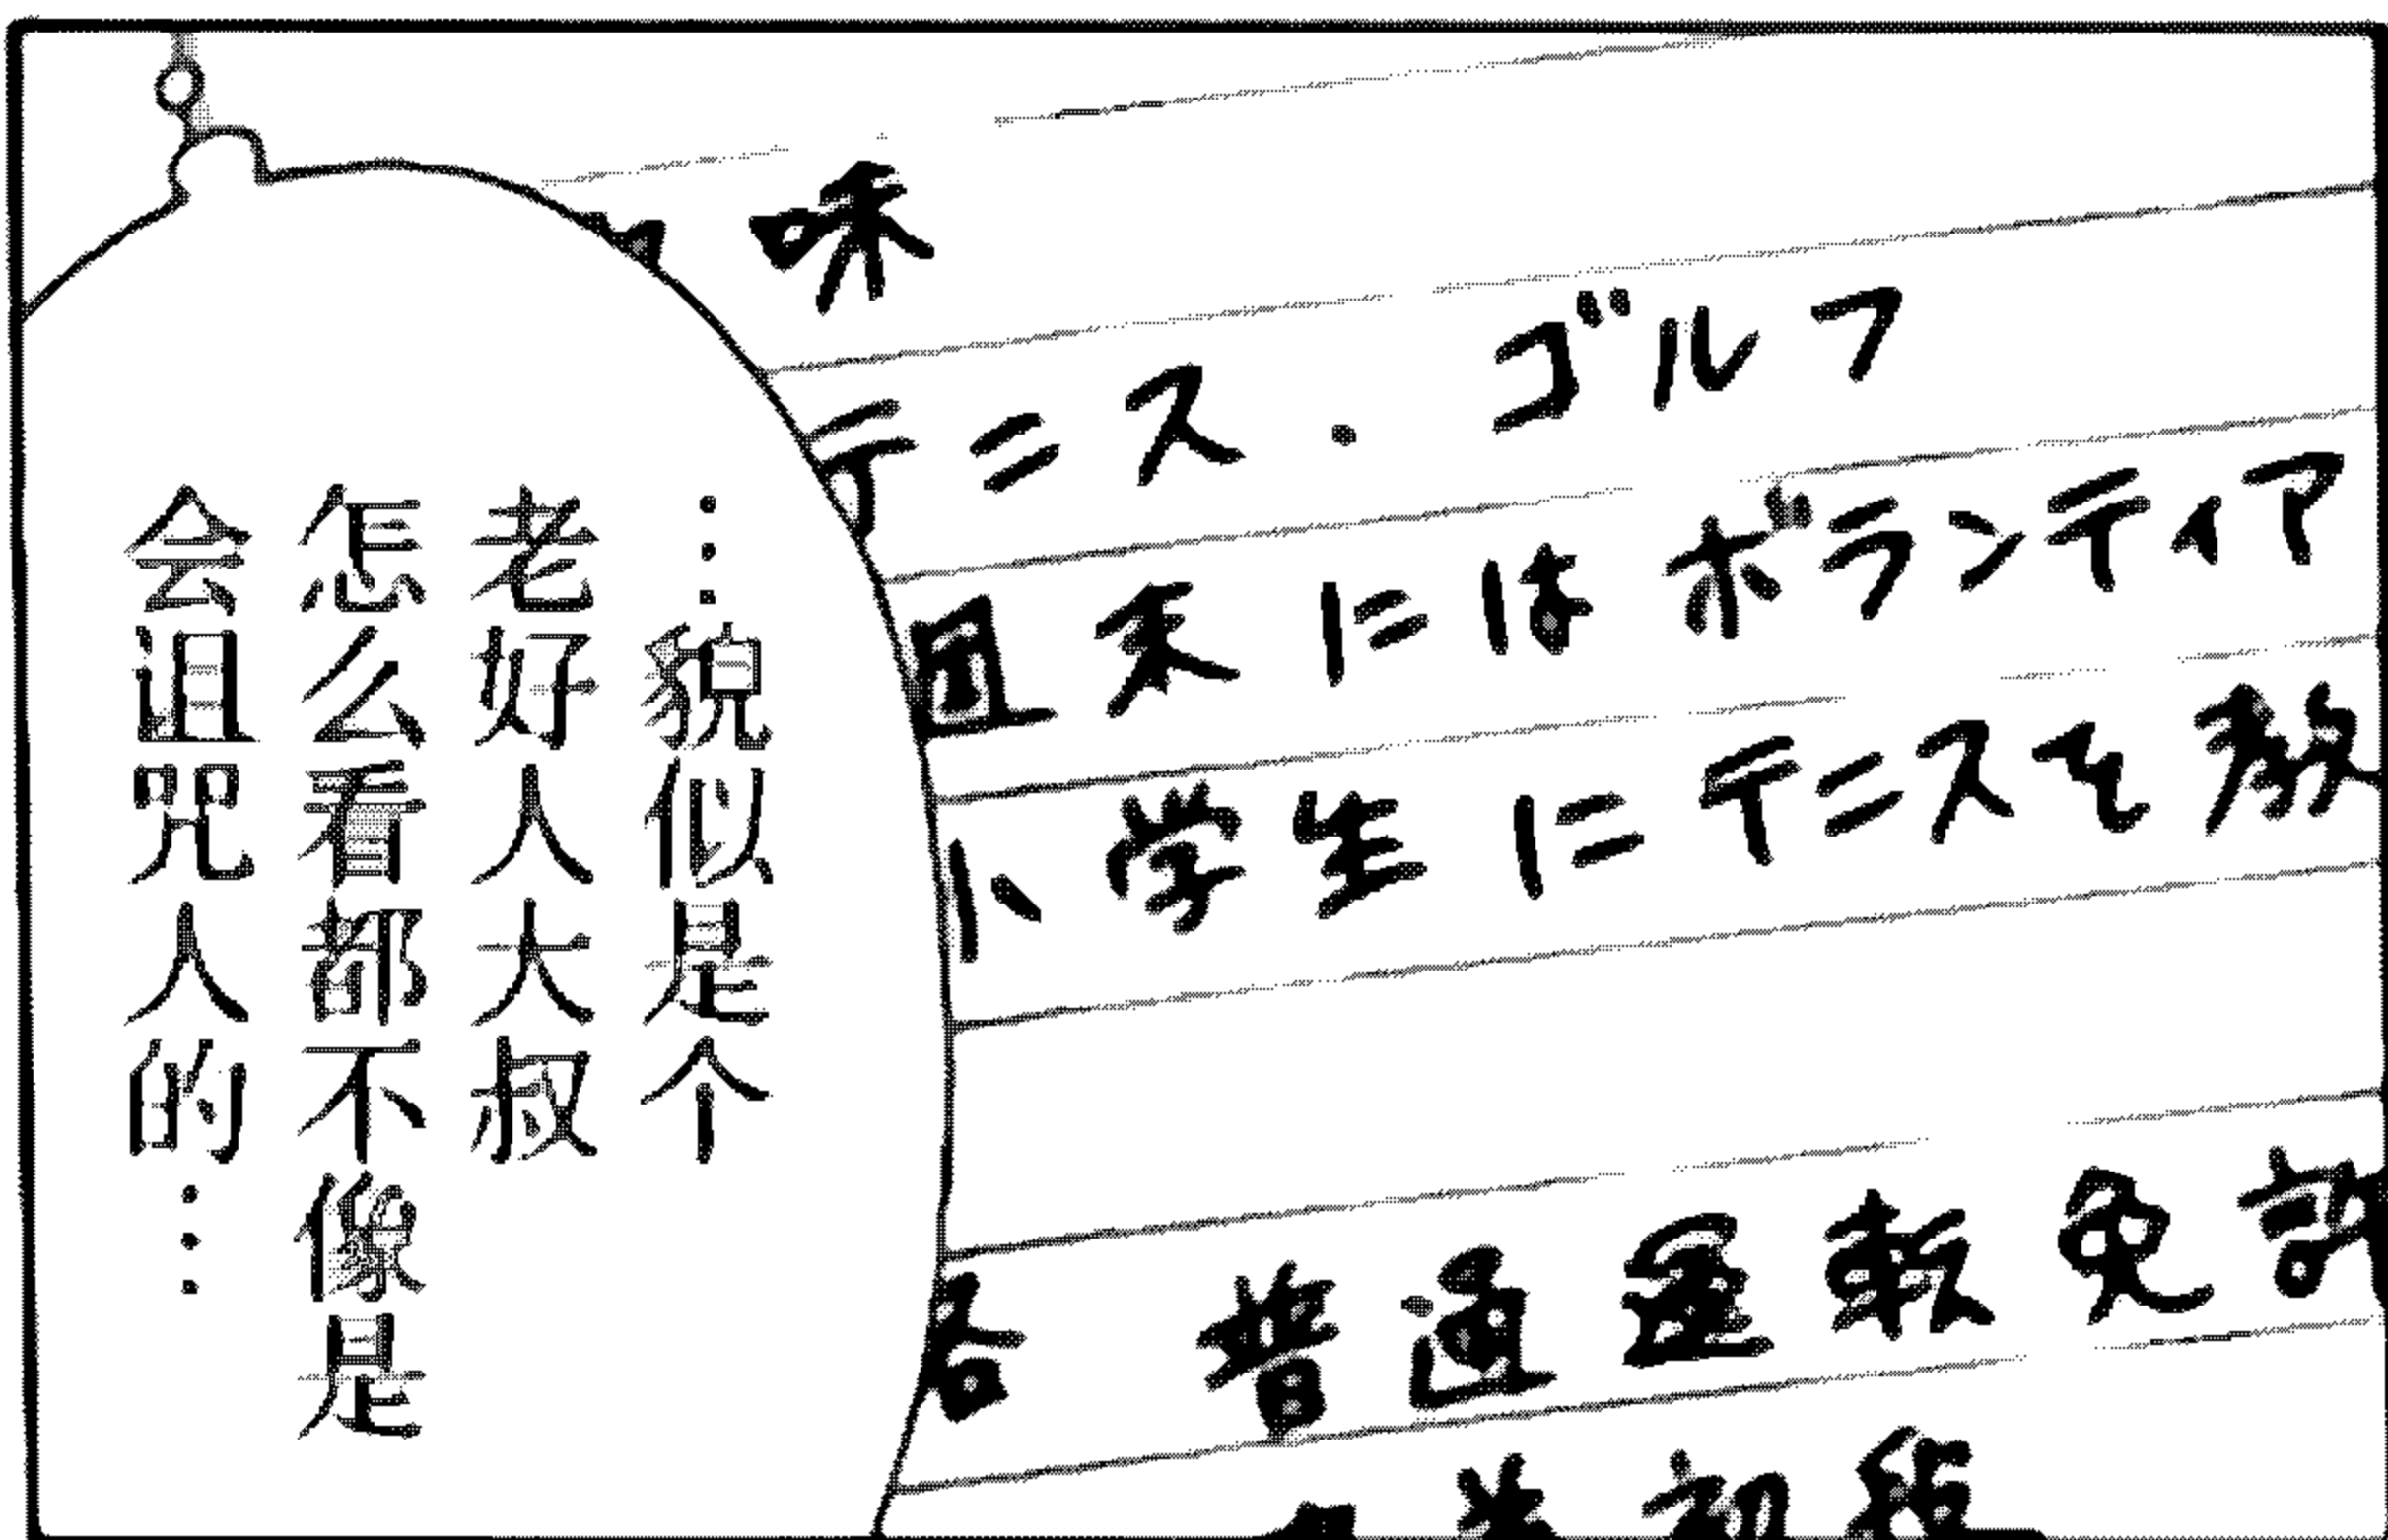 …貌似是个
老好人大叔
怎么看都不像是
会诅咒人的…
味
テニス・ゴルフ
週末にはボランティア
小学生にテニスを教
格 普通運転免許